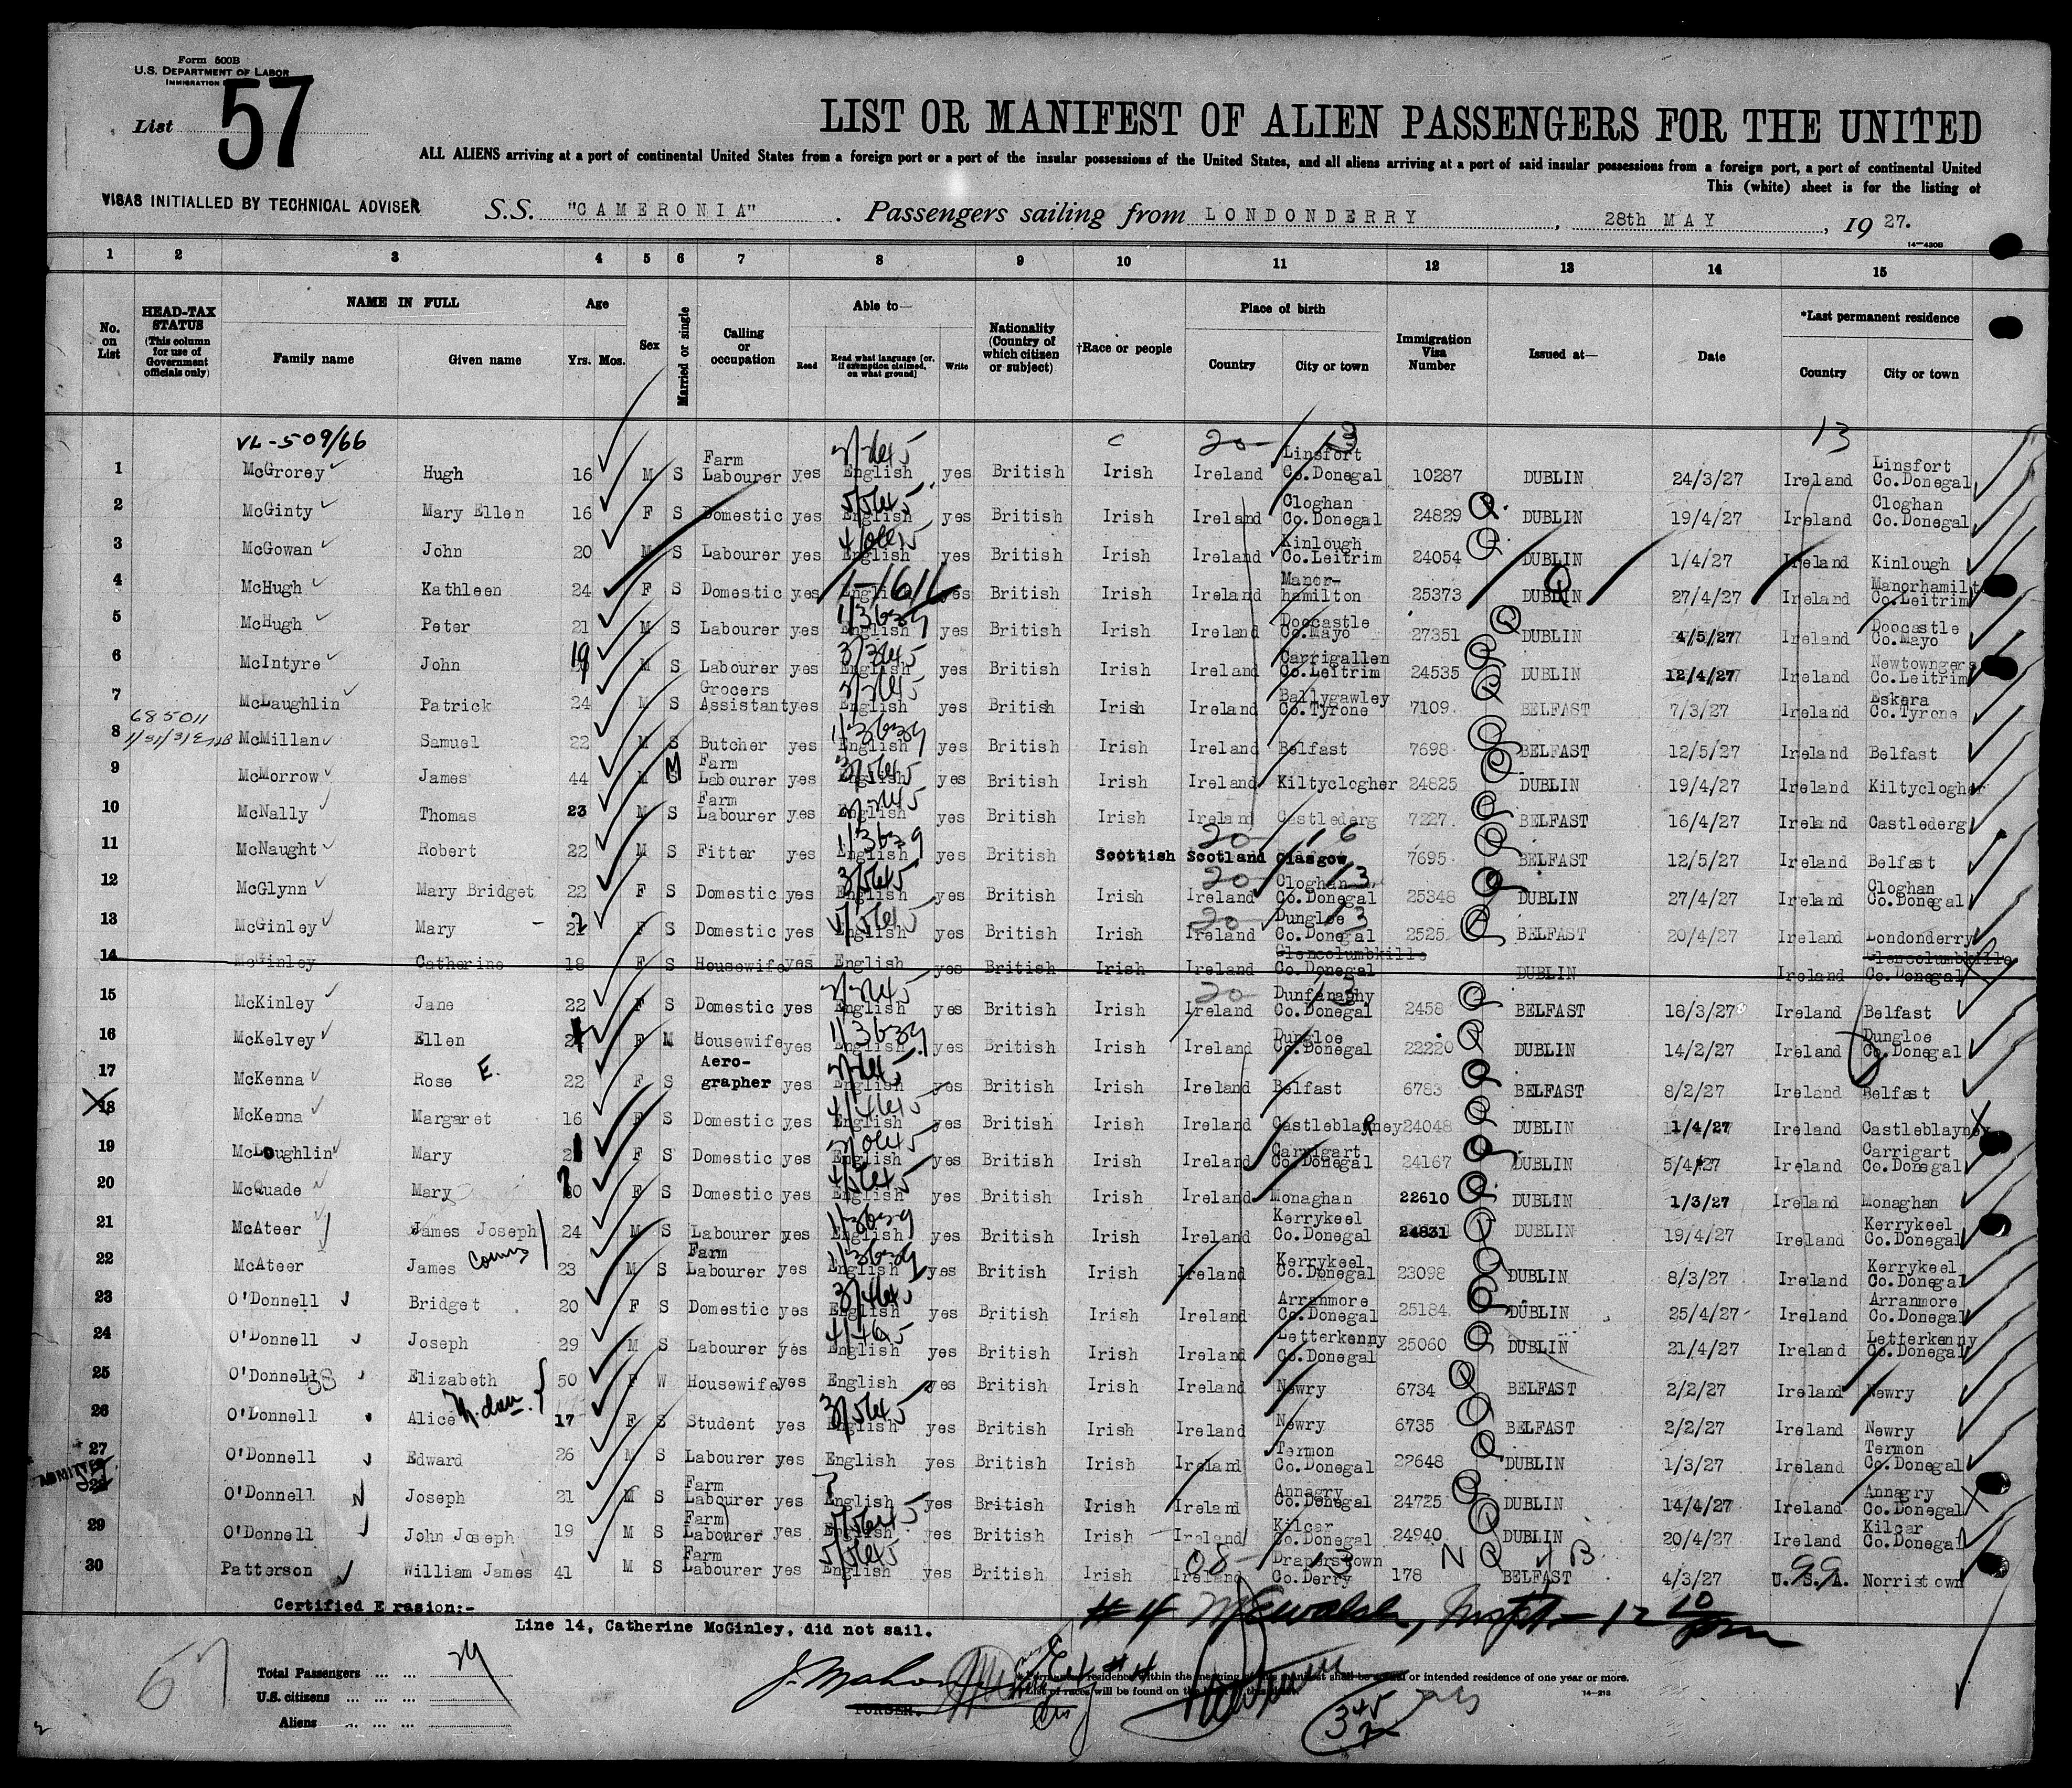 Form 500B
U.S. DEPARTMENT OF LABOR
IMMIGRATION
List 57
LIST OR MANIFEST OF ALIEN PASSENGERS FOR THE UNITED
ALL ALIENS arriving at a port of continental United States from a foreign port or a port of the insular possessions of the United States, and all aliens arriving at a port of said insular possessions from a foreign port, a port of continental United
This (white) sheet is for the listing of
VISAS INITIALLED BY TECHNICAL ADVISER
S.S. "CAMERONIA" . Passengers sailing from LONDONDERRY , 28th MAY , 19 27.
14-430B
1 2 3 4 5 6 7 8 9 10 11 12 13 14 15
No. on List HEAD-TAX STATUS (This column for use of Government officials only) NAME IN FULL Family name Given name Age Yrs. Mos. Sex Married or single Calling or occupation Able to— Read Read what language (or, if exemption claimed, on what ground) Write Nationality (Country of which citizen or subject) †Race or people Place of birth Country City or town Immigration Visa Number Issued at— Date *Last permanent residence Country City or town
VL-509/66 20- 13 13
1 McGrorey Hugh 16 M S Farm Labourer yes English yes British Irish Ireland Linsfort Co.Donegal 10287 DUBLIN 24/3/27 Ireland Linsfort Co.Donegal
2 McGinty Mary Ellen 16 F S Domestic yes English yes British Irish Ireland Cloghan Co.Donegal 24829 DUBLIN 19/4/27 Ireland Cloghan Co.Donegal
3 McGowan John 20 M S Labourer yes English yes British Irish Ireland Kinlough Co.Leitrim 24054 DUBLIN 1/4/27 Ireland Kinlough
4 McHugh Kathleen 24 F S Domestic yes English yes British Irish Ireland Manor-hamilton 25373 DUBLIN 27/4/27 Ireland Manorhamilt Co.Leitrim
5 McHugh Peter 21 M S Labourer yes English yes British Irish Ireland Doocastle Co.Mayo 27351 DUBLIN 4/5/27 Ireland Doocastle Co.Mayo
6 McIntyre John 19 M S Labourer yes English yes British Irish Ireland Carrigallen Co.Leitrim 24535 DUBLIN 12/4/27 Ireland Newtowngers Co.Leitrim
7 McLaughlin Patrick 24 M S Grocers Assistant yes English yes British Irish Ireland Ballygawley Co.Tyrone 7109 BELFAST 7/3/27 Ireland Eskera Co.Tyrone
685011
8 McMillan Samuel 22 M S Butcher yes English yes British Irish Ireland Belfast 7698 BELFAST 12/5/27 Ireland Belfast
9 McMorrow James 44 M M Farm Labourer yes English yes British Irish Ireland Kiltyclogher 24825 DUBLIN 19/4/27 Ireland Kiltyclogher
10 McNally Thomas 23 M S Farm Labourer yes English yes British Irish Ireland Castlederg 7227 BELFAST 16/4/27 Ireland Castlederg
11 McNaught Robert 22 M S Fitter yes English yes British Scottish Scotland Glasgow 7695 BELFAST 12/5/27 Ireland Belfast
12 McGlynn Mary Bridget 22 F S Domestic yes English yes British Irish Ireland Cloghan Co.Donegal 25348 DUBLIN 27/4/27 Ireland Cloghan Co.Donegal
13 McGinley Mary 22 F S Domestic yes English yes British Irish Ireland Dungloe Co.Donegal 2525 BELFAST 20/4/27 Ireland Londonderry
14 McGinley Catherine 18 F S Housewife yes English yes British Irish Ireland Glencolumbkille Co.Donegal DUBLIN Ireland Glencolumbkille Co.Donegal
15 McKinley Jane 22 F S Domestic yes English yes British Irish Ireland Dunfanaghy Co.Donegal 2458 BELFAST 18/3/27 Ireland Belfast
16 McKelvey Ellen F M Housewife yes English yes British Irish Ireland Dungloe Co.Donegal 22220 DUBLIN 14/2/27 Ireland Dungloe Co.Donegal
17 McKenna Rose E. 22 F S Aero-grapher yes English yes British Irish Ireland Belfast 6783 BELFAST 8/2/27 Ireland Belfast
18 McKenna Margaret 16 F S Domestic yes English yes British Irish Ireland Castleblayney 24048 DUBLIN 1/4/27 Ireland Castleblayney
19 McLoughlin Mary 21 F S Domestic yes English yes British Irish Ireland Carrigart Co.Donegal 24167 DUBLIN 5/4/27 Ireland Carrigart Co.Donegal
20 McQuade Mary F S Domestic yes English yes British Irish Ireland Monaghan 22610 DUBLIN 1/3/27 Ireland Monaghan
21 McAteer James Joseph 24 M S Labourer yes English yes British Irish Ireland Kerrykeel Co.Donegal 24831 DUBLIN 19/4/27 Ireland Kerrykeel Co.Donegal
22 McAteer James 23 M S Farm Labourer yes English yes British Irish Ireland Kerrykeel Co.Donegal 23098 DUBLIN 8/3/27 Ireland Kerrykeel Co.Donegal
23 O'Donnell Bridget 20 F S Domestic yes English yes British Irish Ireland Arranmore Co.Donegal 25184 DUBLIN 25/4/27 Ireland Arranmore Co.Donegal
24 O'Donnell Joseph 29 M S Labourer yes English yes British Irish Ireland Letterkenny Co.Donegal 25060 DUBLIN 21/4/27 Ireland Letterkenny Co.Donegal
25 O'Donnell Elizabeth 50 F W Housewife yes English yes British Irish Ireland Newry 6734 BELFAST 2/2/27 Ireland Newry
26 O'Donnell Alice 17 F S Student yes English yes British Irish Ireland Newry 6735 BELFAST 2/2/27 Ireland Newry
27 O'Donnell Edward 26 M S Labourer yes English yes British Irish Ireland Termon Co.Donegal 22648 DUBLIN 1/3/27 Ireland Termon Co.Donegal
ADMITTED
28 O'Donnell Joseph 21 M S Farm Labourer yes English yes British Irish Ireland Annagry Co.Donegal 24725 DUBLIN 14/4/27 Ireland Annagry Co.Donegal
29 O'Donnell John Joseph 19 M S Farm Labourer yes English yes British Irish Ireland Kilcar Co.Donegal 24940 DUBLIN 20/4/27 Ireland Kilcar Co.Donegal
30 Patterson William James 41 M S Farm Labourer yes English yes British Irish Ireland Draperstown Co.Derry 178 BELFAST 4/3/27 U.S.A. Norristown
Certified Erasion:-
Line 14, Catherine McGinley, did not sail.
Total Passengers ... ... 29
U.S. citizens ... ... ...
Aliens ... ... ...
PURSER.
* Permanent residence within the meaning of this manifest shall be actual or intended residence of one year or more.
† List of races will be found on the back of this sheet.
14-213